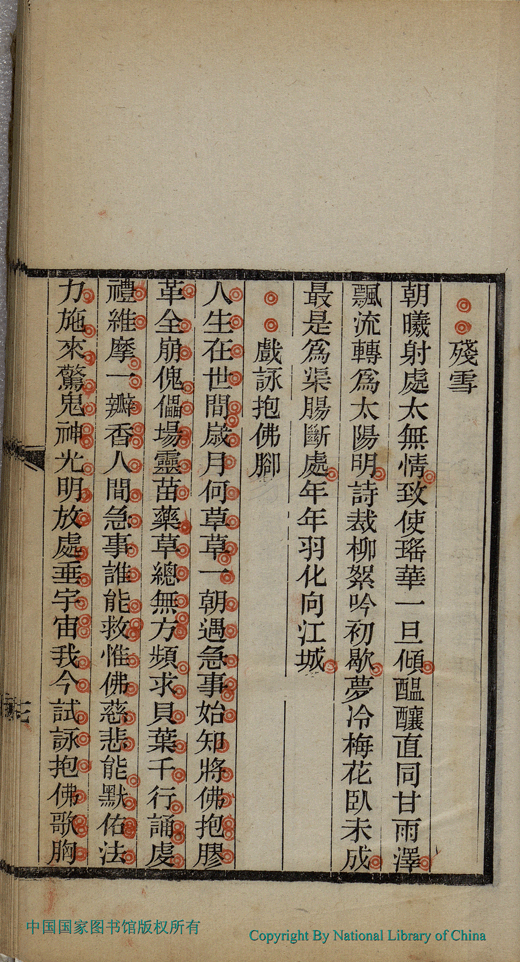 殘雪
朝曦射處太無情致使瑤華一旦傾醞釀直同甘雨澤
飄流轉爲太陽明詩裁柳絮吟初歇夢冷梅花臥未成
最是爲渠腸斷處年年羽化向江城
戲詠抱佛腳
人生在世間歲月何草草一朝遇急事始知將佛抱膠
革全崩傀儡場靈苗藥草總無方頻求貝葉千行誦虔
禮維摩一瓣香人間急事誰能救惟佛慈悲能默佑法
力施來驚鬼神光明放處垂宇宙我今試詠抱佛歌胸
中国国家图书馆版权所有
Copyright By National Library of China